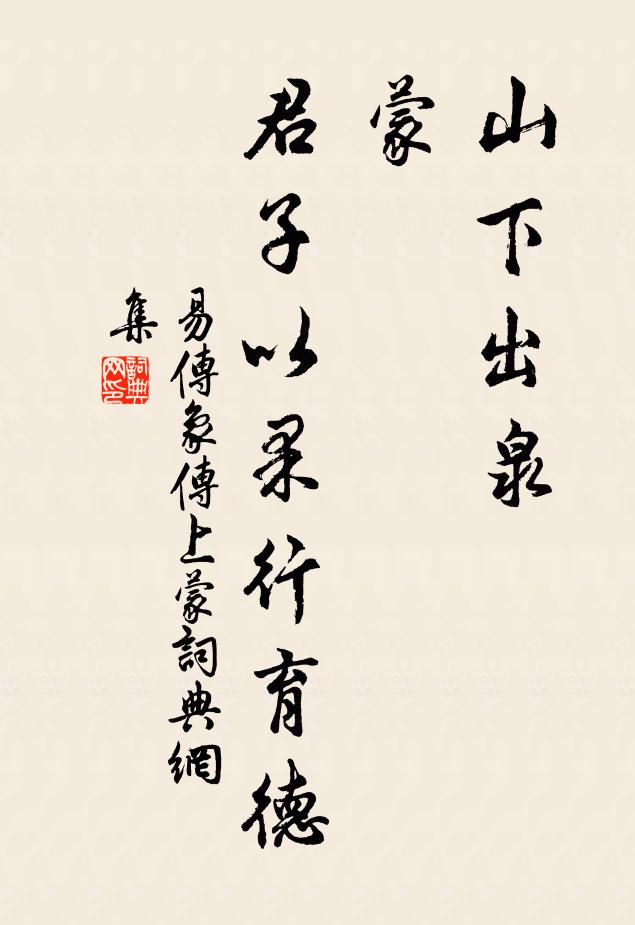 山下出泉
蒙
君子以果行育德
易傳象傳上蒙詞典網
集
詞典
網印